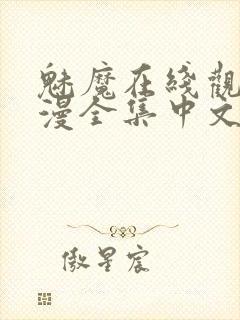 魅魔在綫觀
漫全集中文
傲星宸